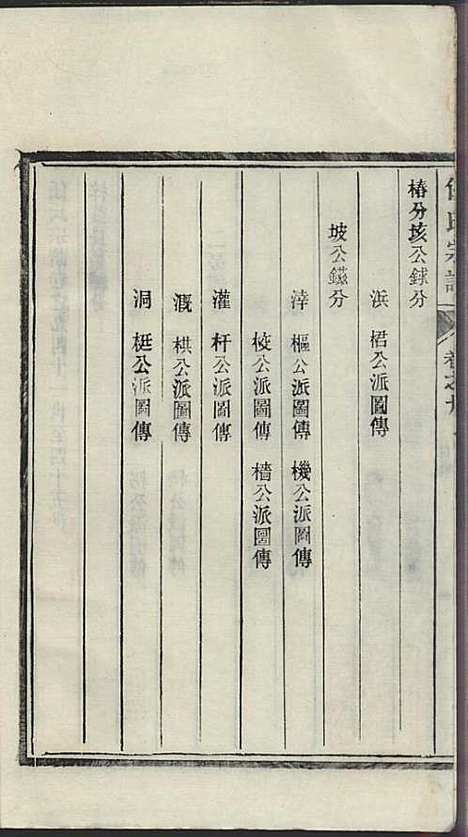 椿分垓公銶分
浜 桾公派圖傳
坡公鎡分
滓 樞公派圖傳 機公派圖傳
校公派圖傳 檣公派圖傳
灌 杆公派圖傳
溉 栱公派圖傳
洞 梃公派圖傳